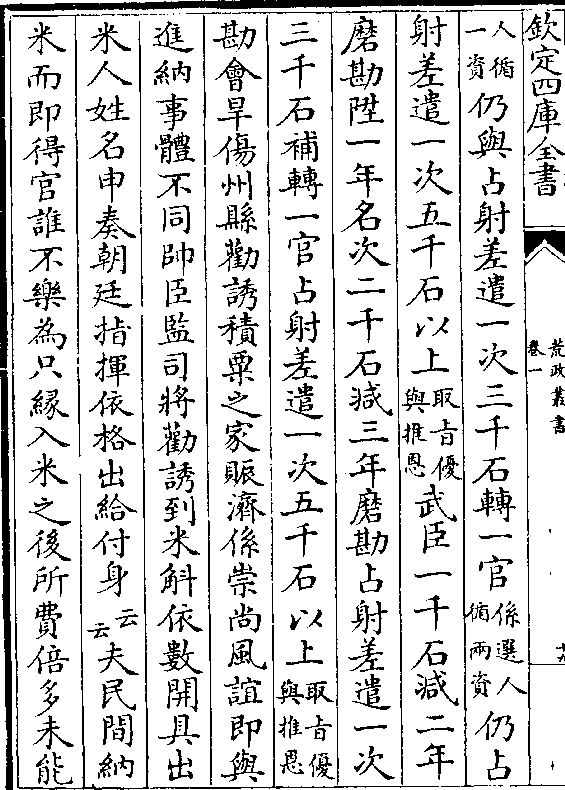 欽定四庫全書
荒政叢書
卷一
人循一資仍與占射差遣一次三千石轉一官係選人循兩資仍占
射差遣一次五千石以上取旨優與推恩武臣一千石減二年
磨勘陞一年名次二千石減三年磨勘占射差遣一次
三千石補轉一官占射差遣一次五千石以上取旨優與推恩
勘會旱傷州縣勸誘積粟之家賑濟係崇尚風誼即與
進納事體不同帥臣監司將勸誘到米斛依數開具出
米人姓名申奏朝廷指揮依格出給付身云云夫民間納
米而即得官誰不樂為只緣入米之後所費倍多未能